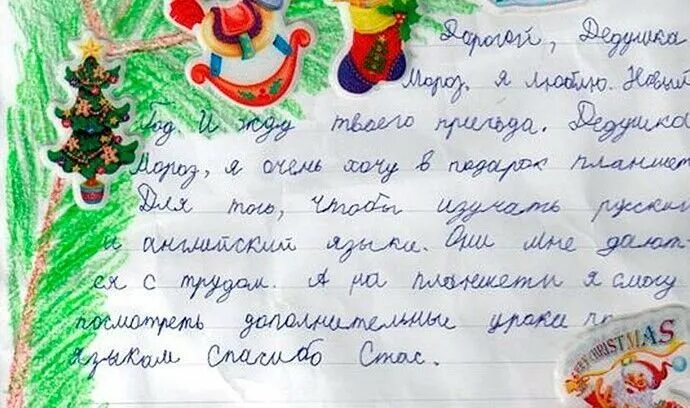 Дорогой, Дедушка
Мороз. я люблю. Новый
Год. И жду твоего приезда. Дедушка
Мороз, я очень хочу в подарок планшет
Для того, чтобы изучать русский
и английский языки. Они мне дают-
ся с трудом. А на планшети я смогу
посмотреть дополнительные уроки по
языкам Спасибо Стас.
MERRY CHRISTMAS